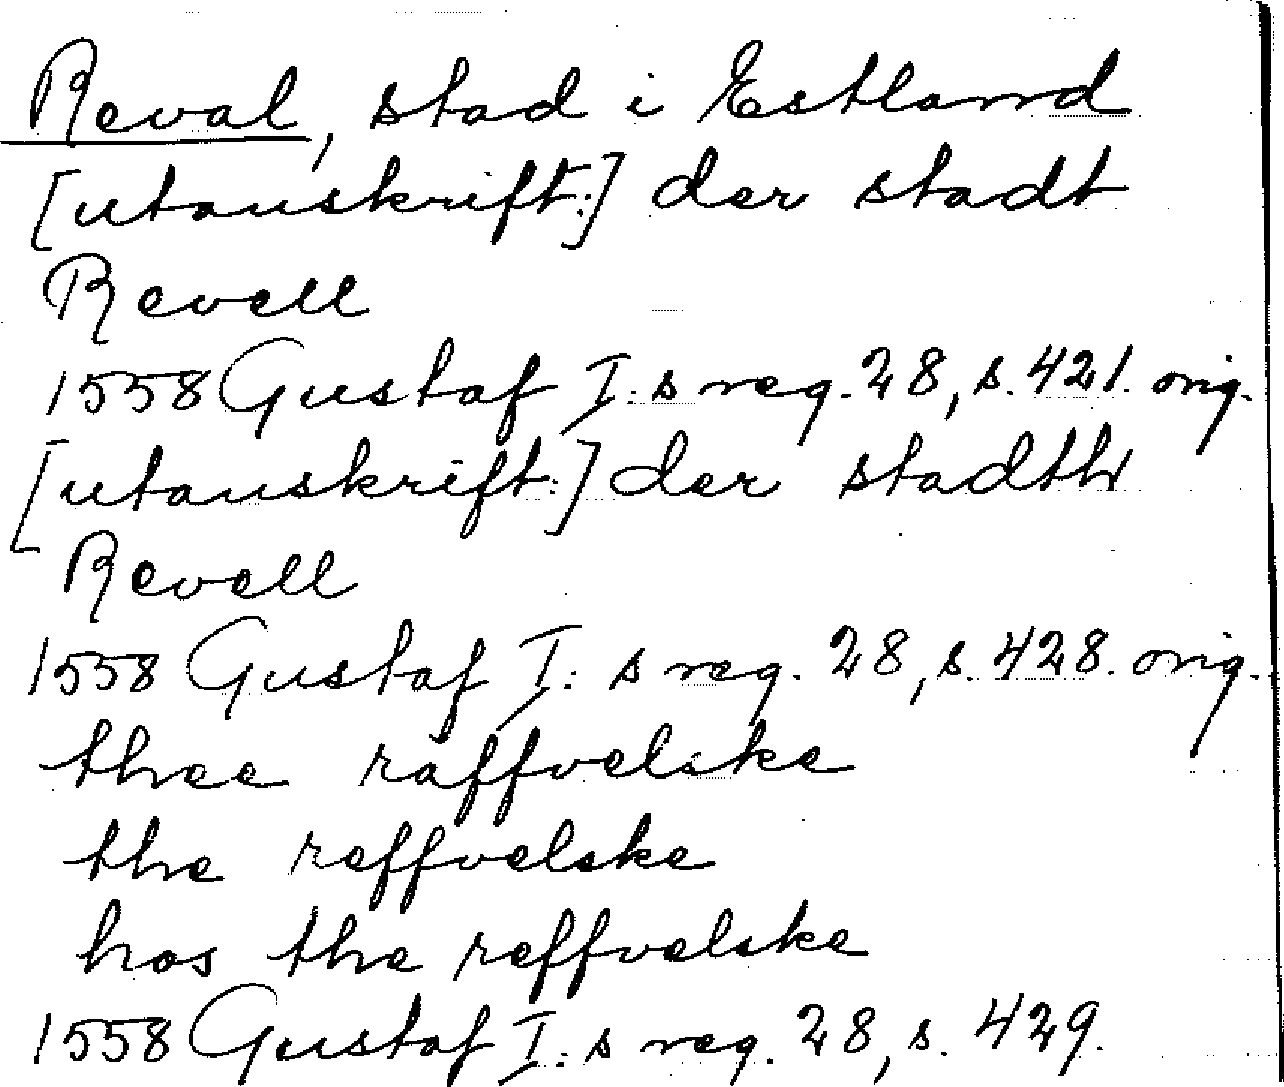 Reval, stad i Estland
[utanskrift:] der stadt
Revell
1558 Gustaf I:s reg. 28, s. 421. orig.
[utanskrift:] der stadth
Revell
1558 Gustaf I:s reg. 28, s. 428. orig.
thee räffvelske
the reffvelske
hos the reffvelske
1558 Gustaf I:s reg. 28, s. 429.